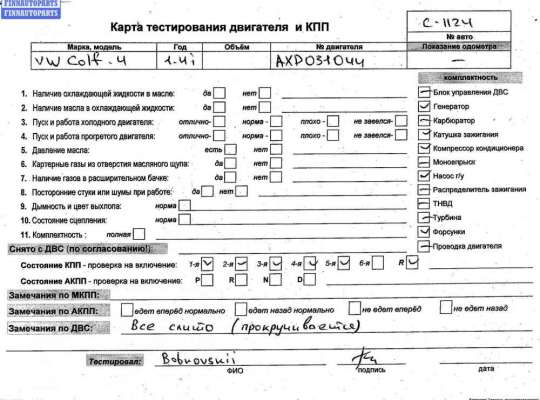 FINNAUTOPARTS
FINNAUTOPARTS
Карта тестирования двигателя и КПП
С-1124
№ авто
Марка, модель Год Объём № двигателя Показание одометра
VW Golf-4 1.4i AXP031044 —
комплектность
1. Наличие охлаждающей жидкости в масле: да нет
2. Наличие масла в охлаждающей жидкости: да нет
3. Пуск и работа холодного двигателя: отлично- норма - плохо - не завелся-
4. Пуск и работа прогретого двигателя: отлично- норма - плохо - не завелся-
5. Давление масла: есть нет
6. Картерные газы из отверстия масляного щупа: да нет
7. Наличие газов в расширительном бачке: да нет
8. Посторонние стуки или шумы при работе: да нет
9. Дымность и цвет выхлопа: норма
10. Состояние сцепления: норма
11. Комплектность : полная
Блок управления ДВС
Генератор
Карбюратор
Катушка зажигания
Компрессор кондиционера
Моновпрыск
Насос г/у
Распределитель зажигания
ТНВД
Турбина
Форсунки
Проводка двигателя
Снято с ДВС (по согласованию!):
Состояние КПП - проверка на включение: 1-я 2-я 3-я 4-я 5-я 6-я R
Состояние АКПП - проверка на включение: P R N D
Замечания по МКПП:
Замечания по АКПП: едет вперёд нормально едет назад нормально не едет вперёд не едет назад
Замечания по ДВС: Все слито (прокручивается)
Тестировал: Bobrovskii
ФИО подпись дата